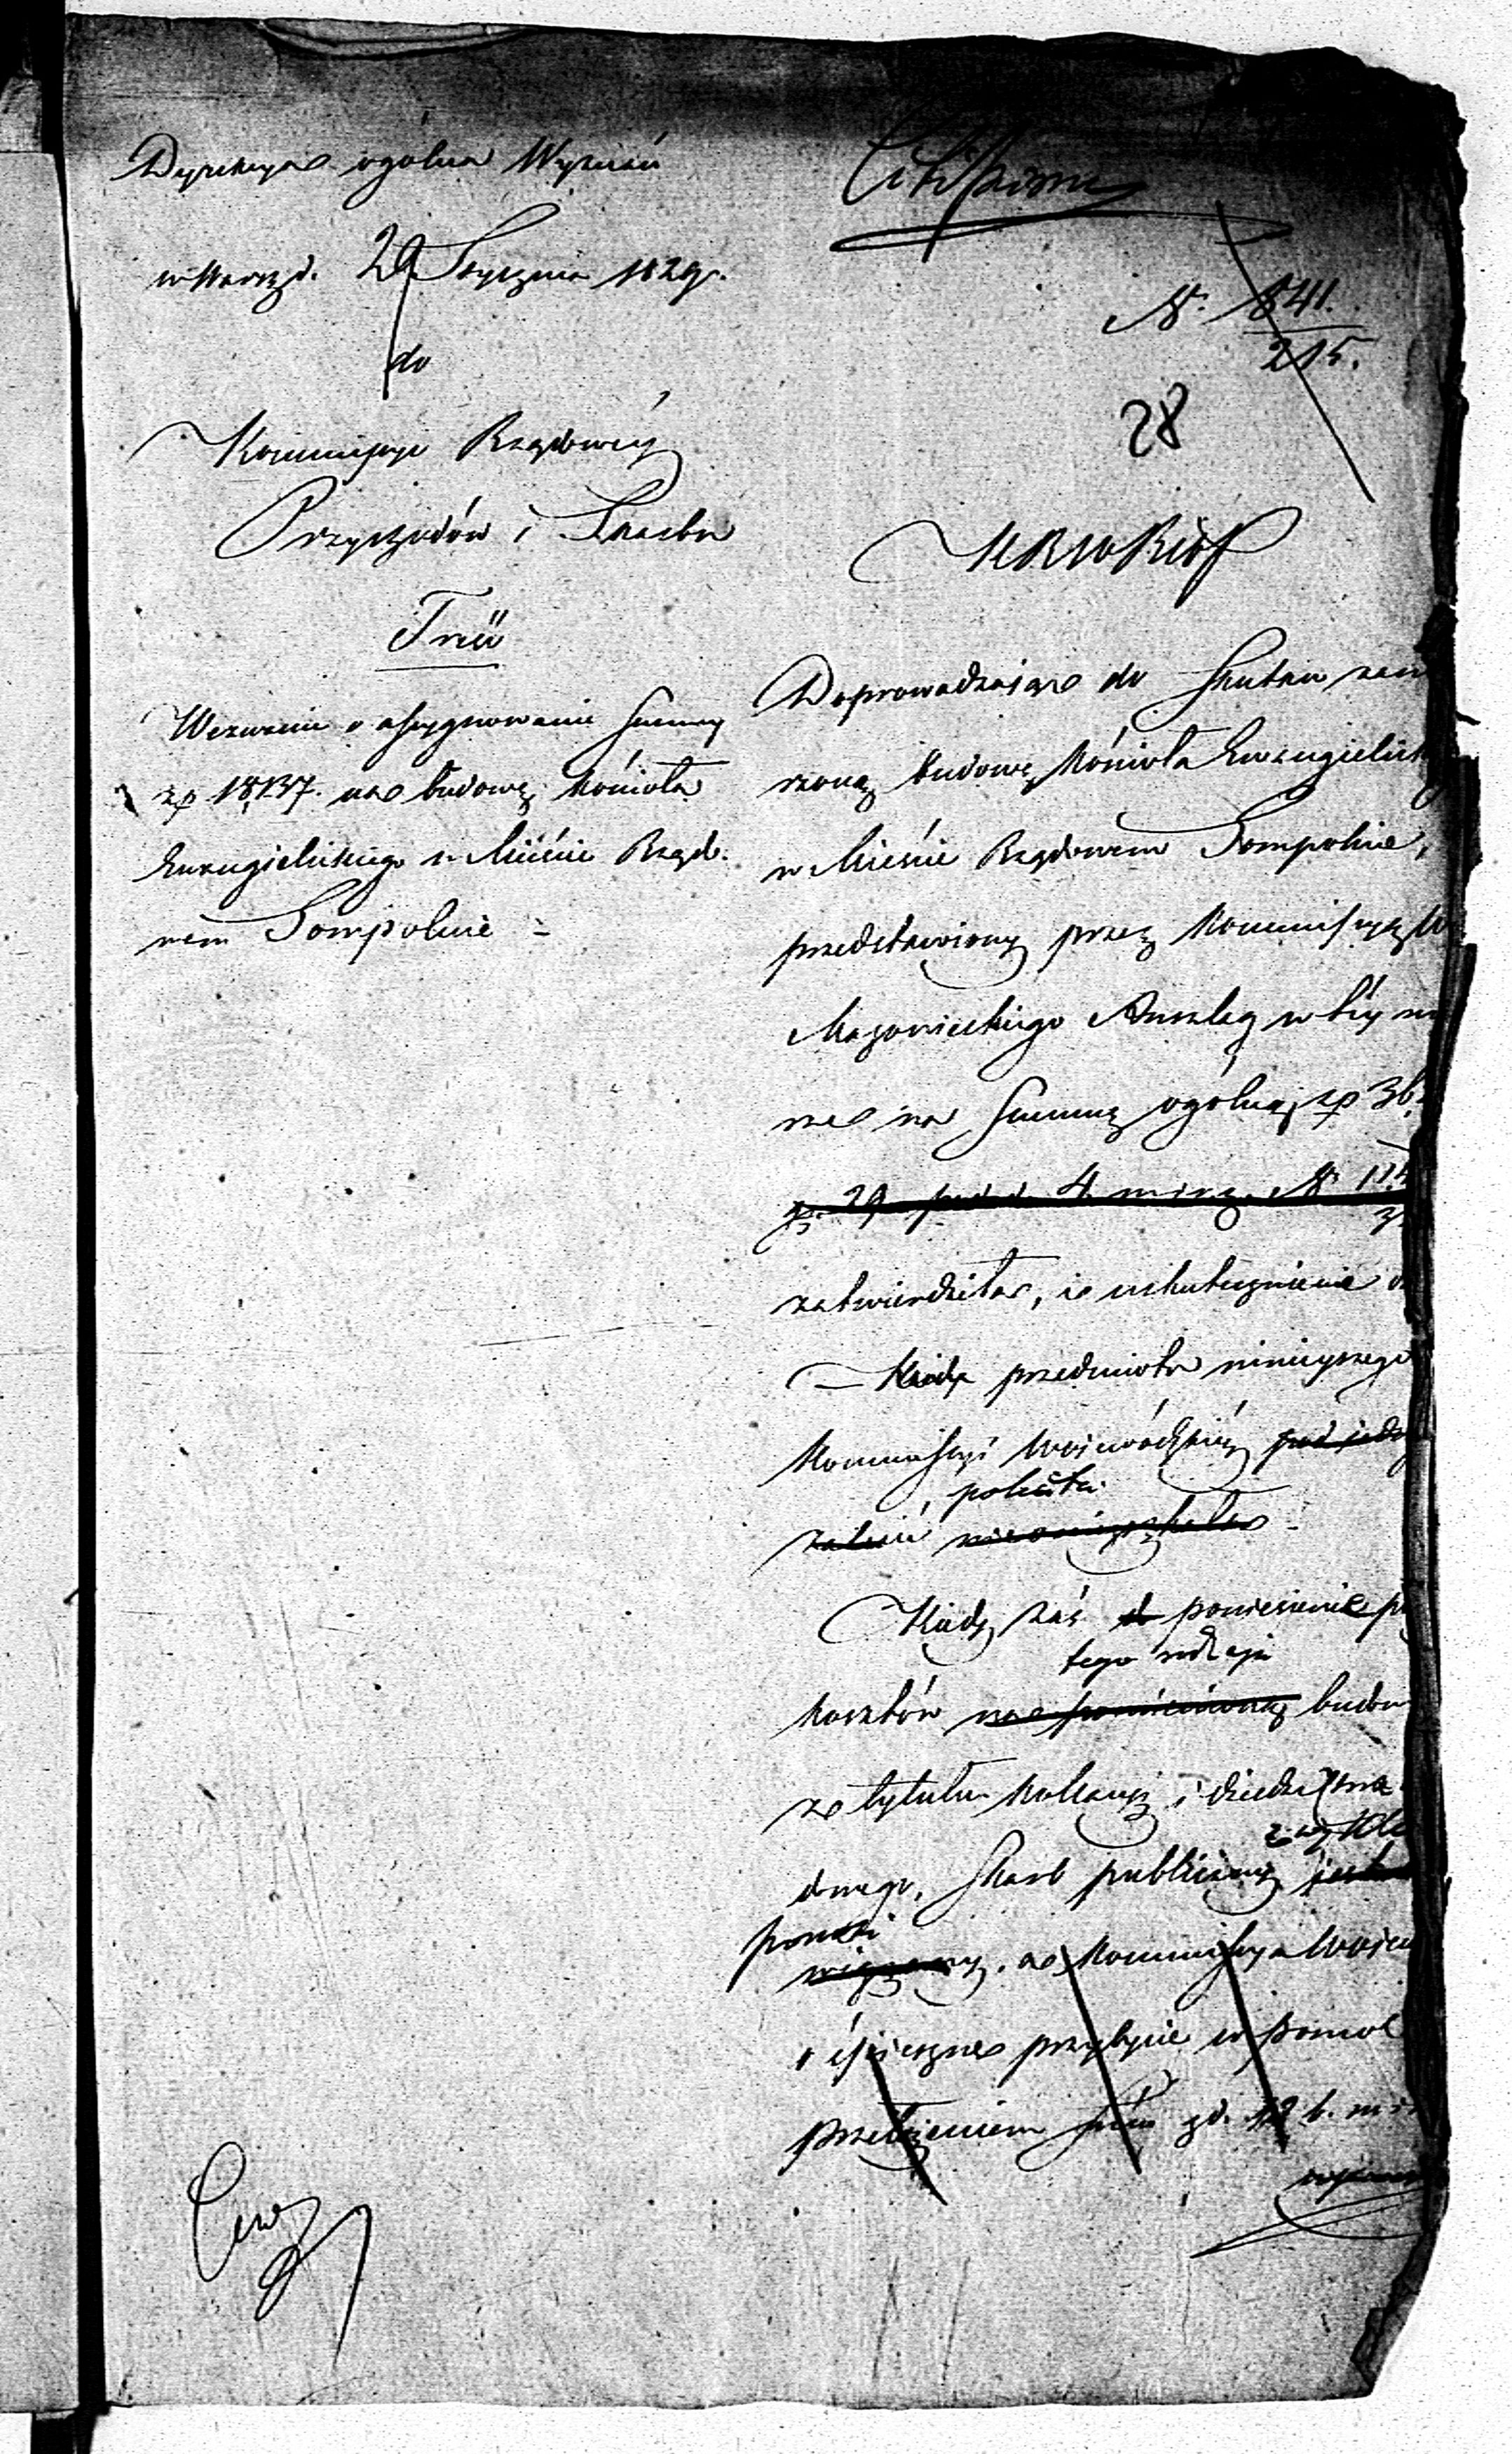 Dyrekcya ogólna Wyznań
w Warsz. d. 29 Stycznia 1829 r.
do
Kommissyi Rządowéy
Przychodów i Skarbu
Treść
Wezwanie o assygnowanie Summy
zp 18,137. na budowę Kościoła
Ewangielickiego w Mieście Rządo-
wem Sompolnie
Citissime
Nr. 841.
215.
28
KRWRiOP
Doprowadzaiąc do Skutku zam
rzoną budowę Kościoła Ewangielick
w Mieście Rządowem Sompolnie,
przedstawiony przez Kommissyą W
Mazowieckiego Anszlag w téy m
rze na Summę ogólną zp 36
gr. 29 pod d. 4. m i r. z. Nr
zatwierdziła, i o uskutecznienie
Kiedy przedmiotu ninieyszego
Kommissyi Woiewódzkiéy pod
poleciła
zalecić nieomieszkała
Kiedy zaś do poniesienie
tego rodzaju
kosztów na budow
z tytułu Kollacyi i dziedzictwa
zwykle
dowego, Skarb publiczny jest
ponosi
. a Kommissya Woiew
o śpieszne przybycie w pomoc
przełożeniem Swém z d. 12 b. m i r